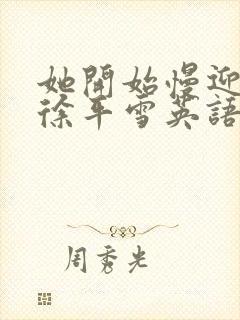 她開始慢迎
徐平雪英語
周秀光